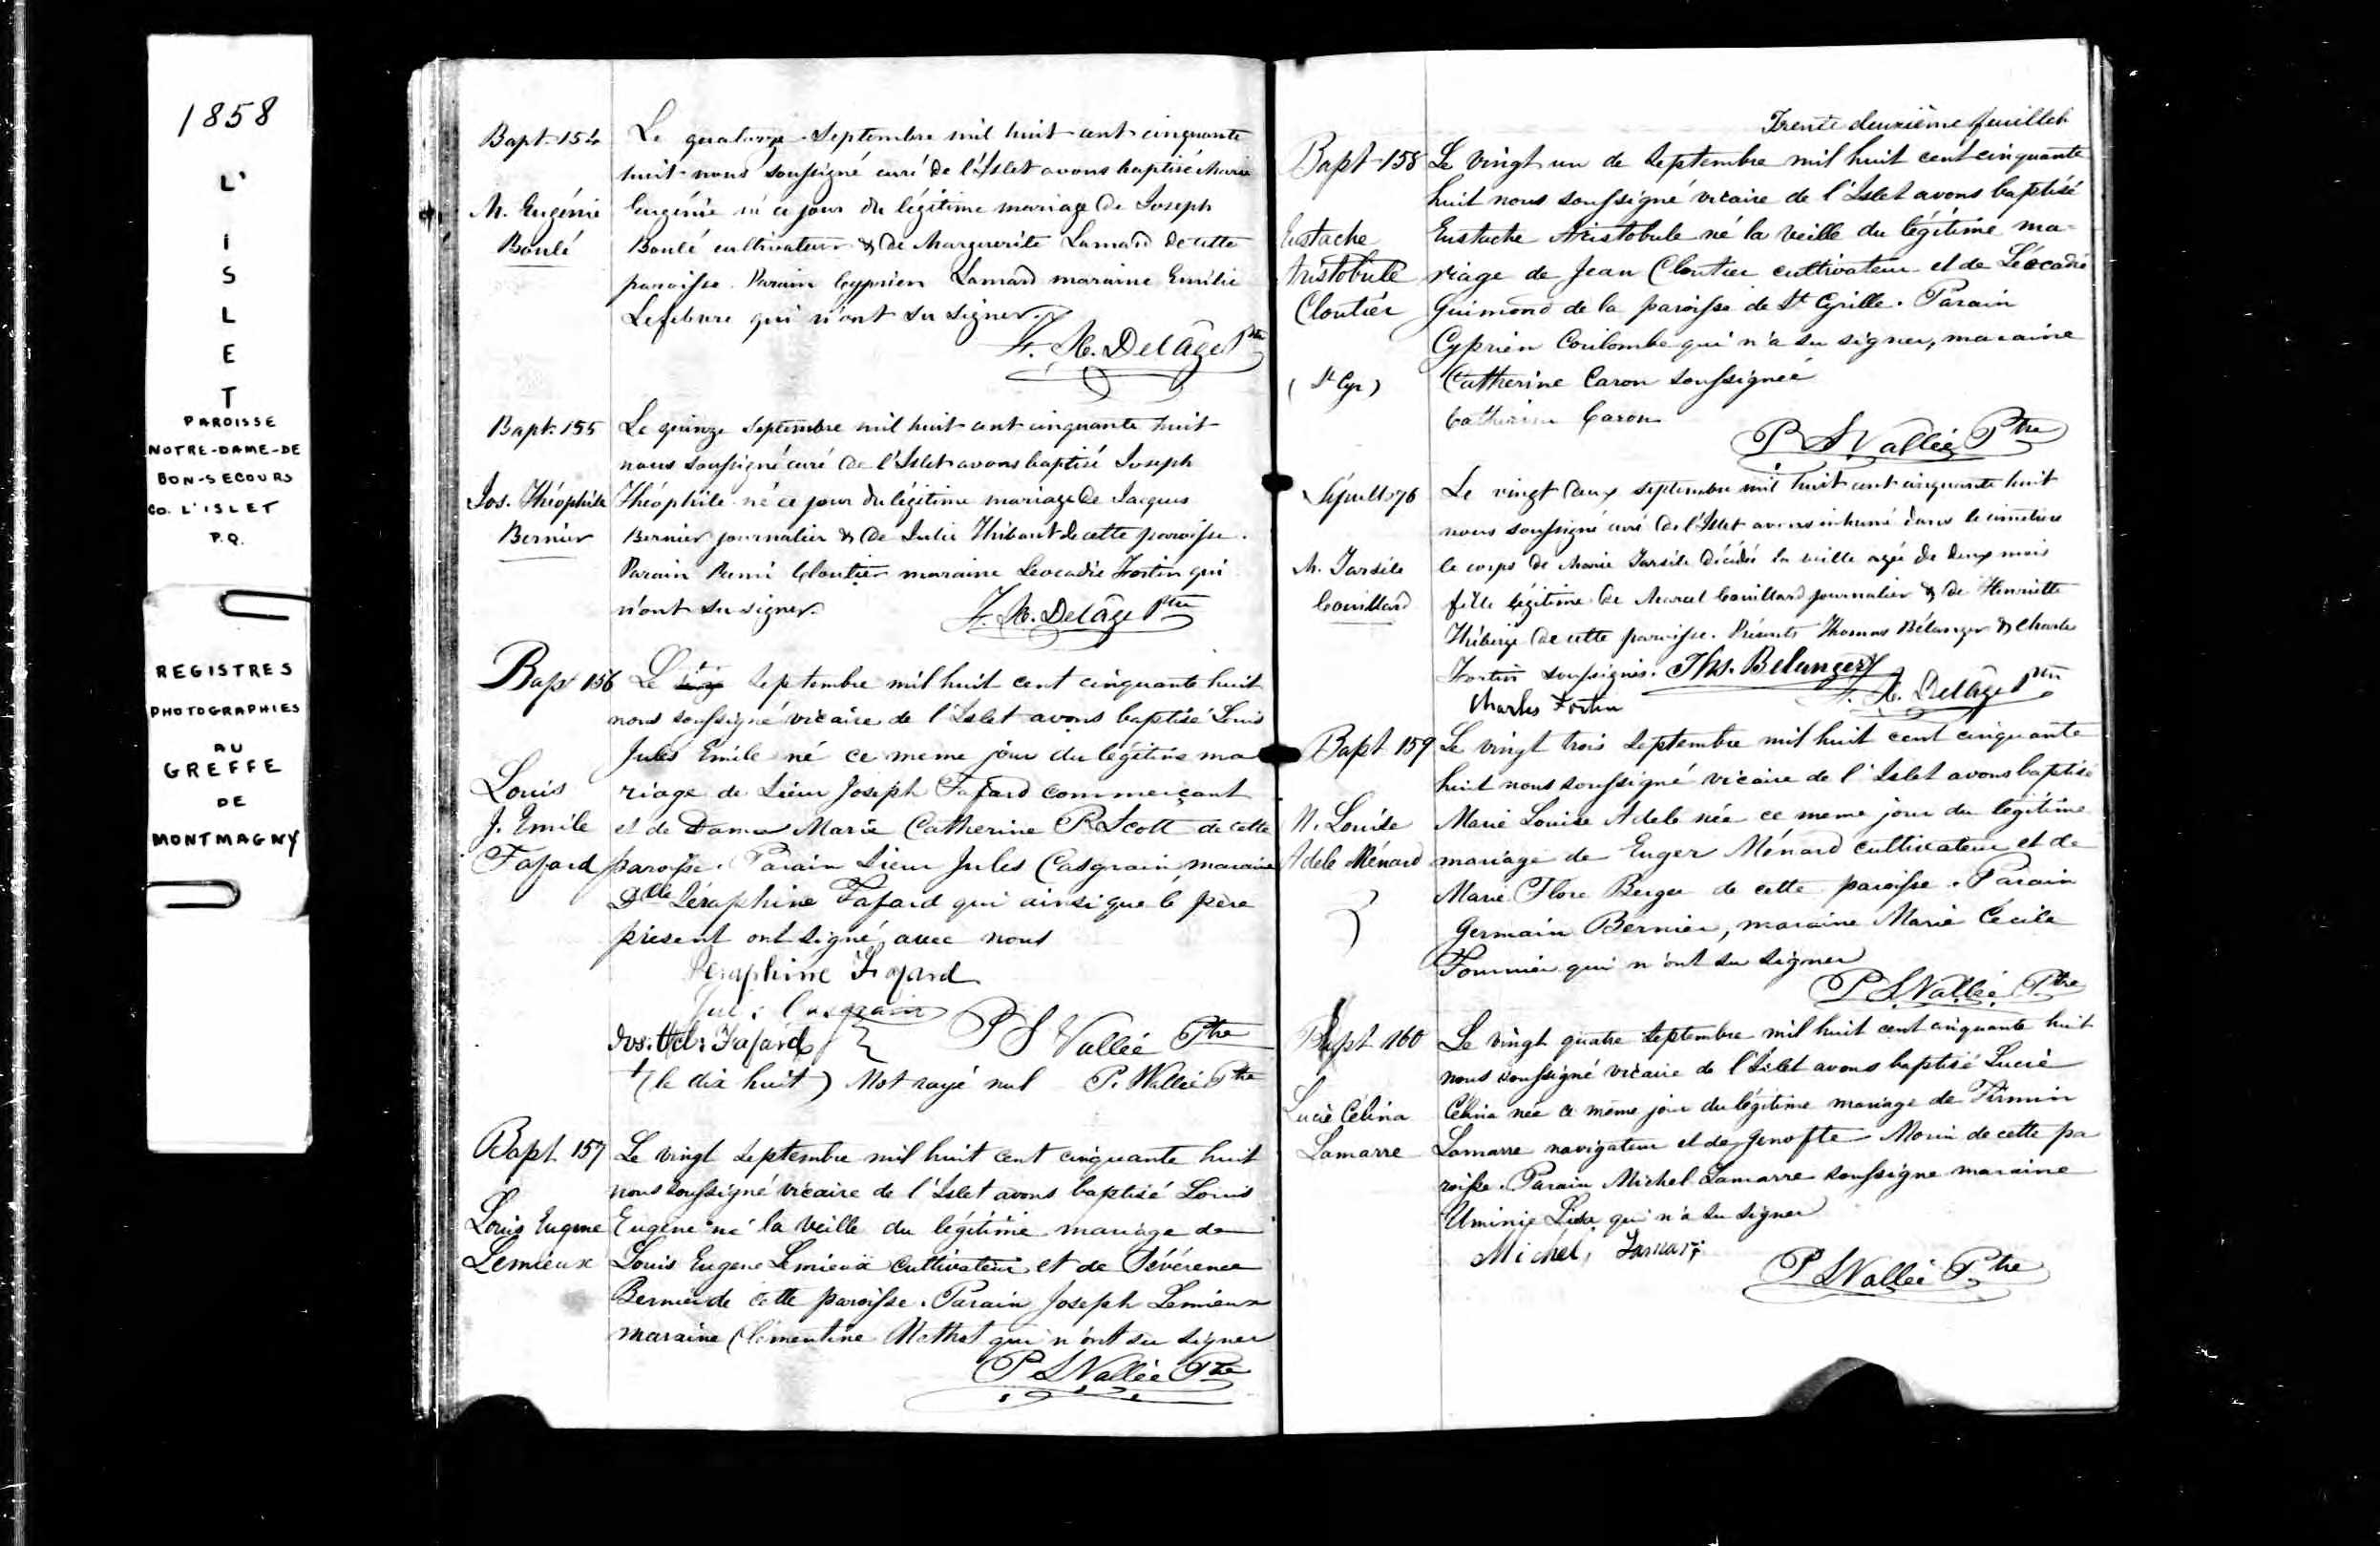 1858
L'
I
S
L
E
T
PAROISSE
NOTRE-DAME-DE
BON-SECOURS
CO. L'ISLET
P.Q.
REGISTRES
PHOTOGRAPHIES
AU
GREFFE
DE
MONTMAGNY
Bapt. 154
M. Eugénie
Boulé
Le quatorze Septembre mil huit cent cinquante
huit nous soussigné curé de l'Islet avons baptisé Marie
Eugénie né ce jour du légitime mariage de Joseph
Boulé cultivateur & de Marguerite Lamard de cette
paroisse. Parain Cyprien Lamard maraine Emilie
Lefebvre qui n'ont su signer.
F. X. Delâge Ptre
Bapt. 155
Jos. Théophile
Bernier
Le quinze Septembre mil huit cent cinquante huit
nous soussigné curé de l'Islet avons baptisé Joseph
Théophile né ce jour du légitime mariage de Jacques
Bernier journalier & de Julie Thibaut de cette paroisse.
Parain Remi Cloutier maraine Leocadie Fortin qui
n'ont su signer.
F. X. Delâge Ptre
Bapt 156
Louis
J. Emile
Fafard
Le + Septembre mil huit cent cinquante huit
nous soussigné vicaire de l'Islet avons baptisé Louis
Jules Emile né ce meme jour du légitime ma
riage de Sieur Joseph Fafard commerçant
et de Dame Marie Catherine R Scott de cette
paroisse. Parain Sieur Jules Casgrain, maraine
Dlle Séraphine Fafard qui ainsi que le père
présent ont signé avec nous
Séraphine Fafard
Jules Casgrain
Jos. Fafard
P S Vallée Ptre
+ (le dix huit) Mot rayé nul P. S Vallée Ptre
Bapt. 157
Louis Eugene
Lemieux
Le vingt Septembre mil huit cent cinquante huit
nous soussigné vicaire de l'Islet avons baptisé Louis
Eugène né la veille du légitime mariage de
Louis Eugene Lemieux cultivateur et de Sévérence
Bernier de cette paroisse. Parain Joseph Lemieux
maraine Clémentine Methot qui n'ont su signer
P S Vallée Ptre
Trente deuxième feuillet
Bapt 158
Eustache
Aristobule
Cloutier
(St Cyr)
Le vingt un de Septembre mil huit cent cinquante
huit nous soussigné vicaire de l'Islet avons baptisé
Eustache Aristobule né la veille du légitime ma-
riage de Jean Cloutier cultivateur et de Léocadie
Guimond de la paroisse de St Cyrille. Parain
Cyprien Coulombe qui n'a su signer, maraine
Catherine Caron soussignée
Catherine Caron
P S Vallée Ptre
Sépult 76
M. Tarsile
Couillard
Le vingt deux septembre mil huit cent cinquante huit
nous soussigné curé de l'Islet avons inhumé dans le cimetiere
le corps de Marie Tarsile décédée la veille agée de deux mois
fille légitime de Marcel Couillard journalier & de Henriette
Théberge de cette paroisse. Présents Thomas Bélanger & Charles
Fortin soussignés. Ths. Belanger
Charles Fortin
F. X. Delâge Ptre
Bapt 159
M. Louise
Adele Ménard
Le vingt trois Septembre mil huit cent cinquante
huit nous soussigné vicaire de l'Islet avons baptisé
Marie Louise Adele née ce meme jour du légitime
mariage de Euger Ménard cultivateur et de
Marie Flore Berger de cette paroisse. Parain
Germain Bernier, maraine Marie Cécile
Fournier qui n'ont su signer
P S Vallée Ptre
Bapt 160
Lucie Célina
Lamarre
Le vingt quatre Septembre mil huit cent cinquante huit
nous soussigné vicaire de l'Islet avons baptisé Lucie
Célina née ce même jour du légitime mariage de Firmin
Lamarre navigateur et de Genofte Morin de cette pa
roisse. Parain Michel Lamarre soussigné maraine
qui n'a su signer
Michel Lamare
P S Vallée Ptre